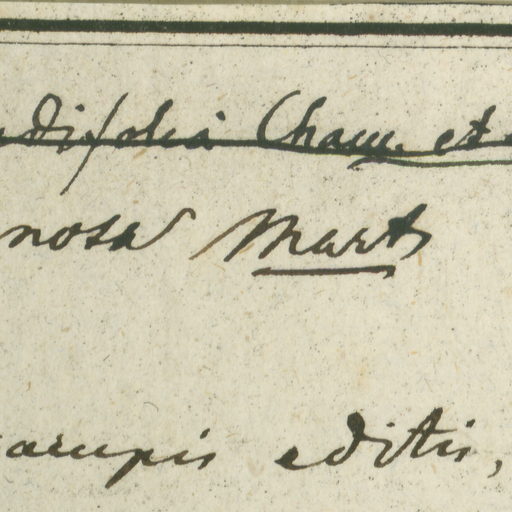 difolia Cham. et
nosa Mart
editis,